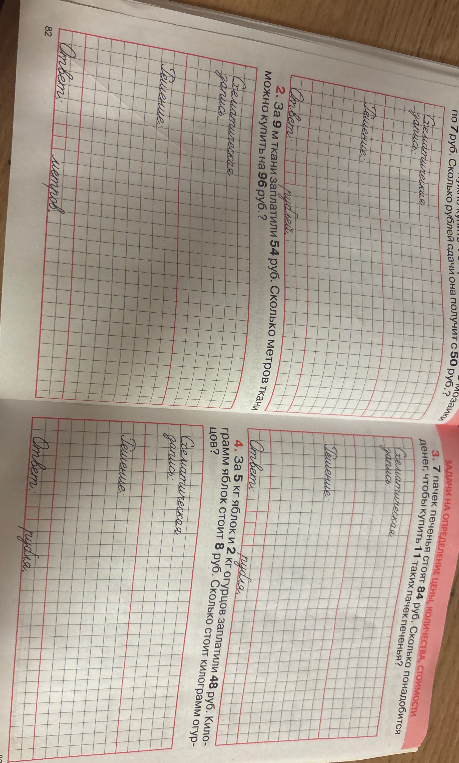 по 7 руб. Сколько рублей сдачи она получит с 50 руб.?
Схематическая
запись.
Решение.
Ответ. рублей.
2. За 9 м ткани заплатили 54 руб. Сколько метров ткани
можно купить на 96 руб.?
Схематическая
запись.
Решение.
Ответ. метров.
82
ЗАДАЧИ НА ОПРЕДЕЛЕНИЕ ЦЕНЫ, КОЛИЧЕСТВА, СТОИМОСТИ
3. 7 пачек печенья стоят 84 руб. Сколько понадобится
денег, чтобы купить 11 таких пачек печенья?
Схематическая
запись.
Решение.
Ответ. рубля.
4. За 5 кг яблок и 2 кг огурцов заплатили 48 руб. Кило-
грамм яблок стоит 8 руб. Сколько стоит килограмм огур-
цов?
Схематическая
запись.
Решение.
Ответ. рубля.